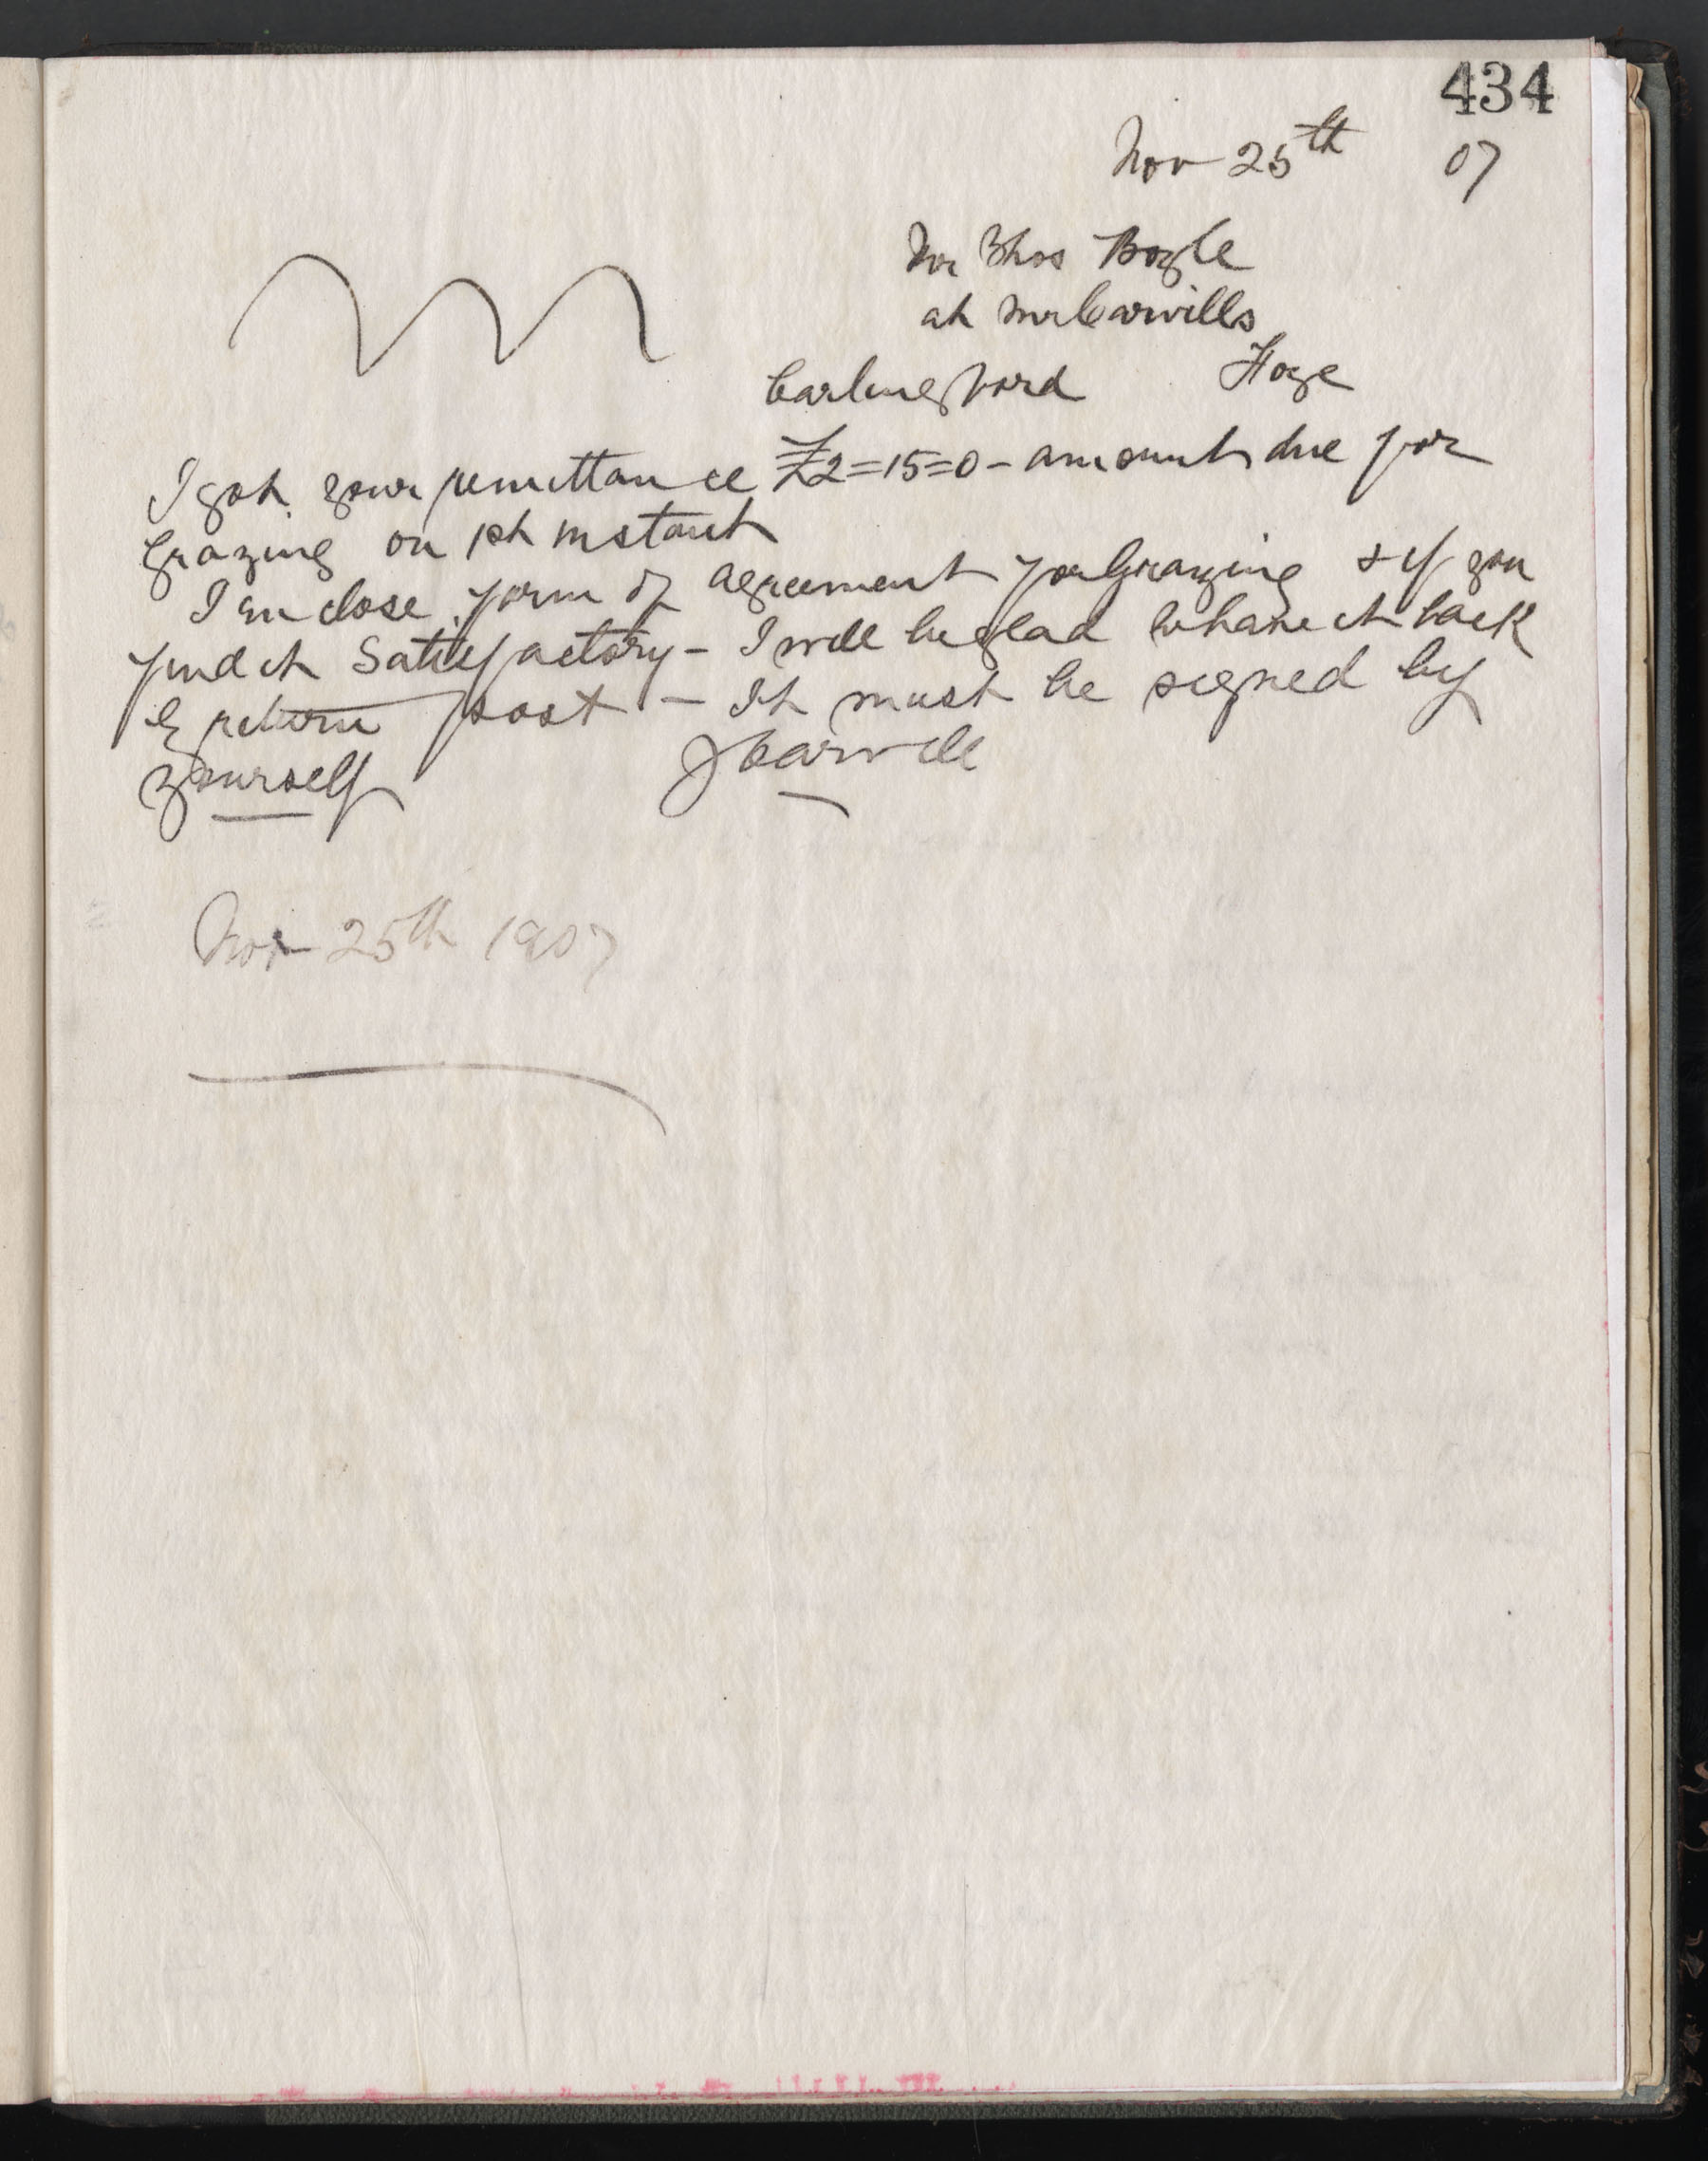 434
Nov 25th 07
Mr Thos Boyle
at Mr Carvills
Carlingford
I got your remittance £2=15=0 - amount due for
grazing on 1st instant
I enclose form of agreement for Grazing & if you
find it Satisfactory - I will be glad to have it back
by return post - It must be signed by
yourself JCarvill
Nov 25th 1907